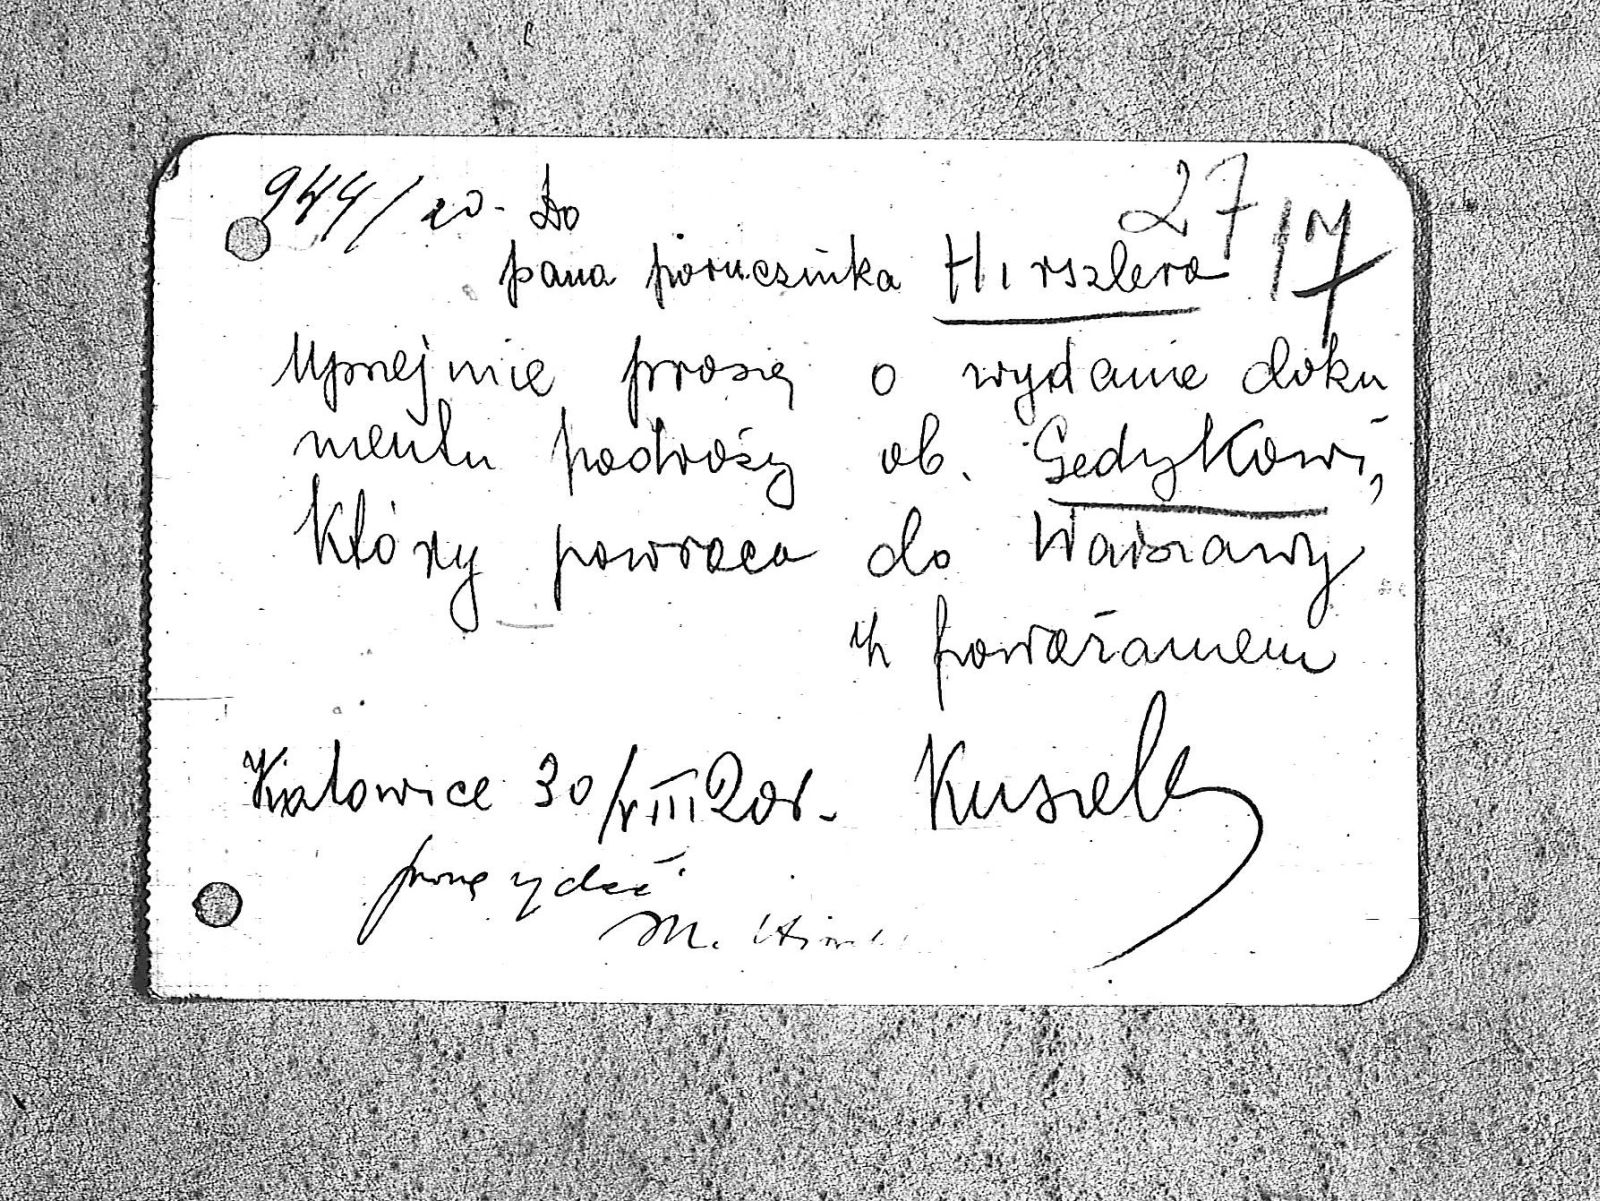 944/20. Do
27/IV
pana porucznika Hirszlera
Uprzejmie proszę o wydanie doku
mentu podróży ob. Gedykowi,
Który powraca do Warszawy
z poważaniem
Katowice 30/VIII 20r. Kusiel
proszę wydać
M.